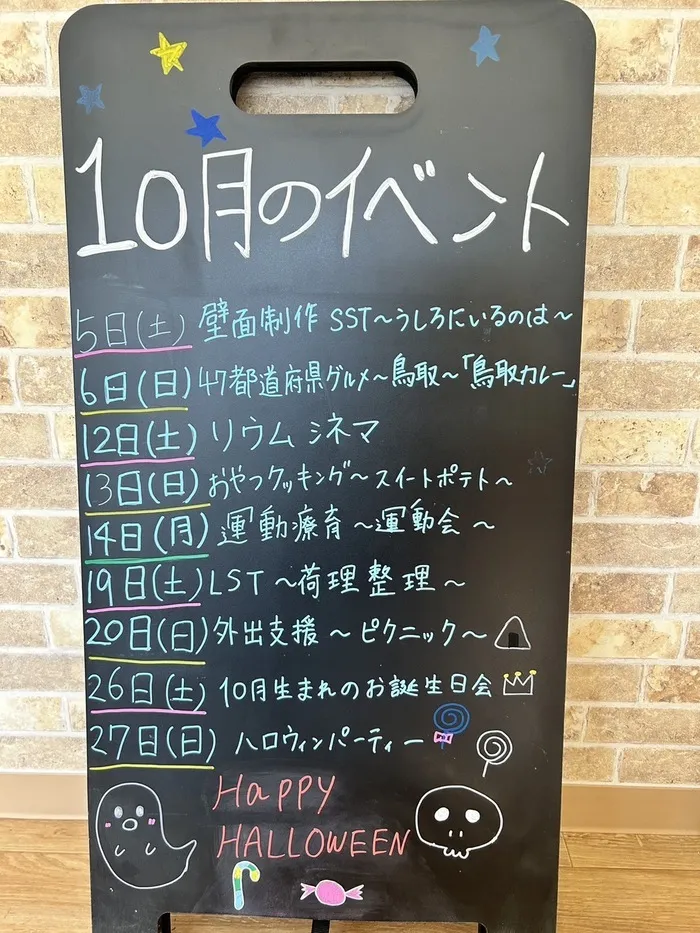 10月のイベント
5日(土) 壁面制作 SST～うしろにいるのは～
6日(日) 47都道府県グルメ～鳥取～「鳥取カレー」
12日(土) リウムシネマ
13日(日) おやつクッキング～スイートポテト～
14日(月) 運動療育～運動会～
19日(土) LST～荷理整理～
20日(日) 外出支援～ピクニック～
26日(土) 10月生まれのお誕生日会
27日(日) ハロウィンパーティー
HaPPY
HALLOWEEN